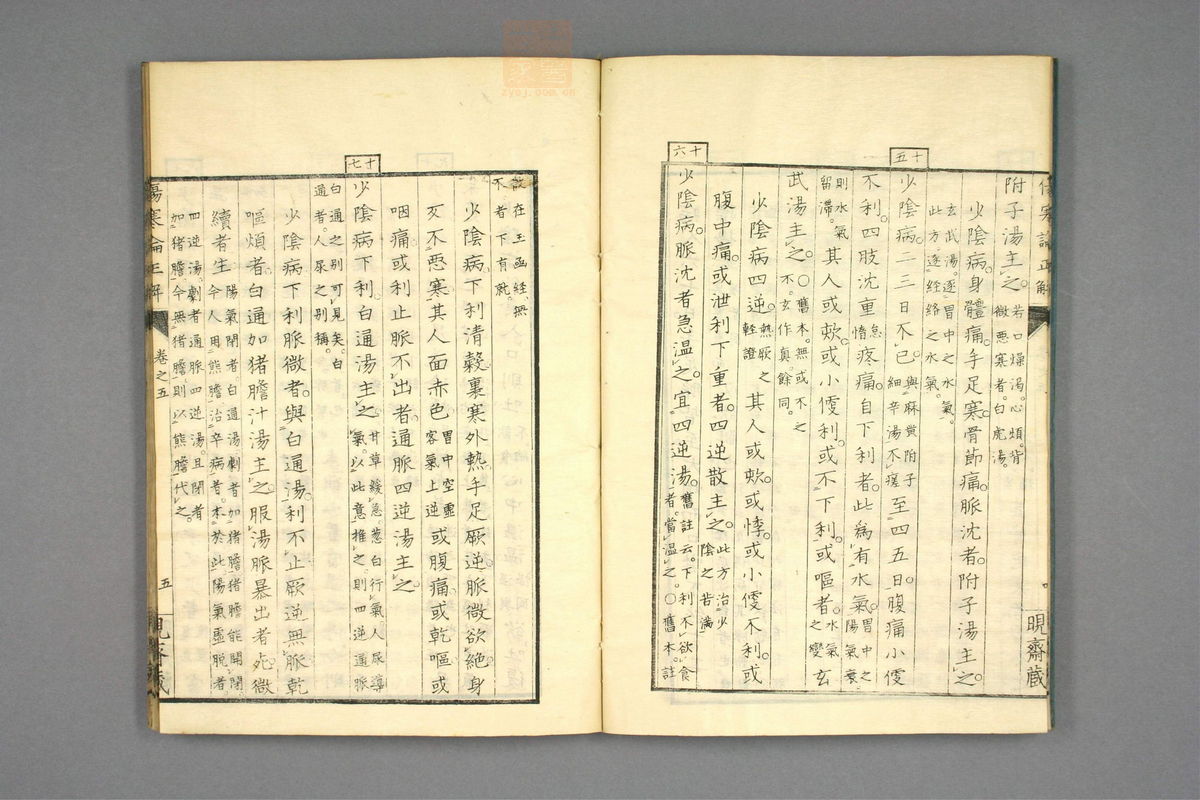 附子湯主之。若口燥渴。心煩。背微惡寒者。白虎湯。
少陰病。身體痛。手足寒。骨節痛。脈沈者。附子湯主之。
玄武湯。逐胃中之水氣。此方逐經絡之水氣。
十五
少陰病。二三日不已。與麻黄附子細辛湯不瘥至四五日。腹痛小便
不利。四肢沈重怠惰疼痛。自下利者。此為有水氣。胃中之陽氣衰
則水氣留滯。其人或欬。或小便利。或不下利。或嘔者。水氣之變玄
武湯主之。○舊本。無或不之不。玄作真。餘同。
少陰病四逆。熱厥之輕證其人或欬。或悸。或小便不利。或
腹中痛。或泄利下重者。四逆散主之。此方治少陰之苦滿
十六
少陰病。脈沈者。急溫之。宜四逆湯。舊註云。下利不欲食者。當溫之。○舊本。註
在玉函經。無不者下有就。
少陰病。下利清穀。裏寒外熱。手足厥逆。脈微欲絕。身
反不惡寒。其人面赤色胃中空虛客氣上逆或腹痛。或乾嘔。或
咽痛。或利止脈不出者。通脈四逆湯主之。
十七
少陰病。下利。白通湯主之。甘草緩急。葱白行氣。人尿導氣。以此意推之。則四逆通脈
白通之別可見矣。白通者。人尿之別稱。
少陰病。下利。脈微者。與白通湯。利不止。厥逆無脈。乾
嘔煩者。白通加猪膽汁湯主之。服湯脈暴出者死。微
續者生。陽氣閉者白通湯劇者加猪膽猪膽能開閉今人用熊膽治卒病者。本於此陽氣虛脫者
四逆湯。劇者通脈四逆湯。且閉者加猪膽今無猪膽。則以熊膽代之。
傷寒論正解
卷之五
五
晛齋蔵
傷寒論正解
晛齋蔵
zyoj.com.cn